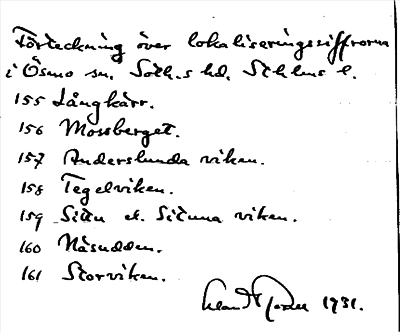 Förteckning över lokaliseringssiffrorna
i Ösmo sn. Soth.s hd. Sthlms l.
155 Långkärr.
156 Mossberget.
157 Anderslunda viken.
158 Tegelviken.
159 Situ el. Situna viken.
160 Näsudden.
161 Storviken.
1931.